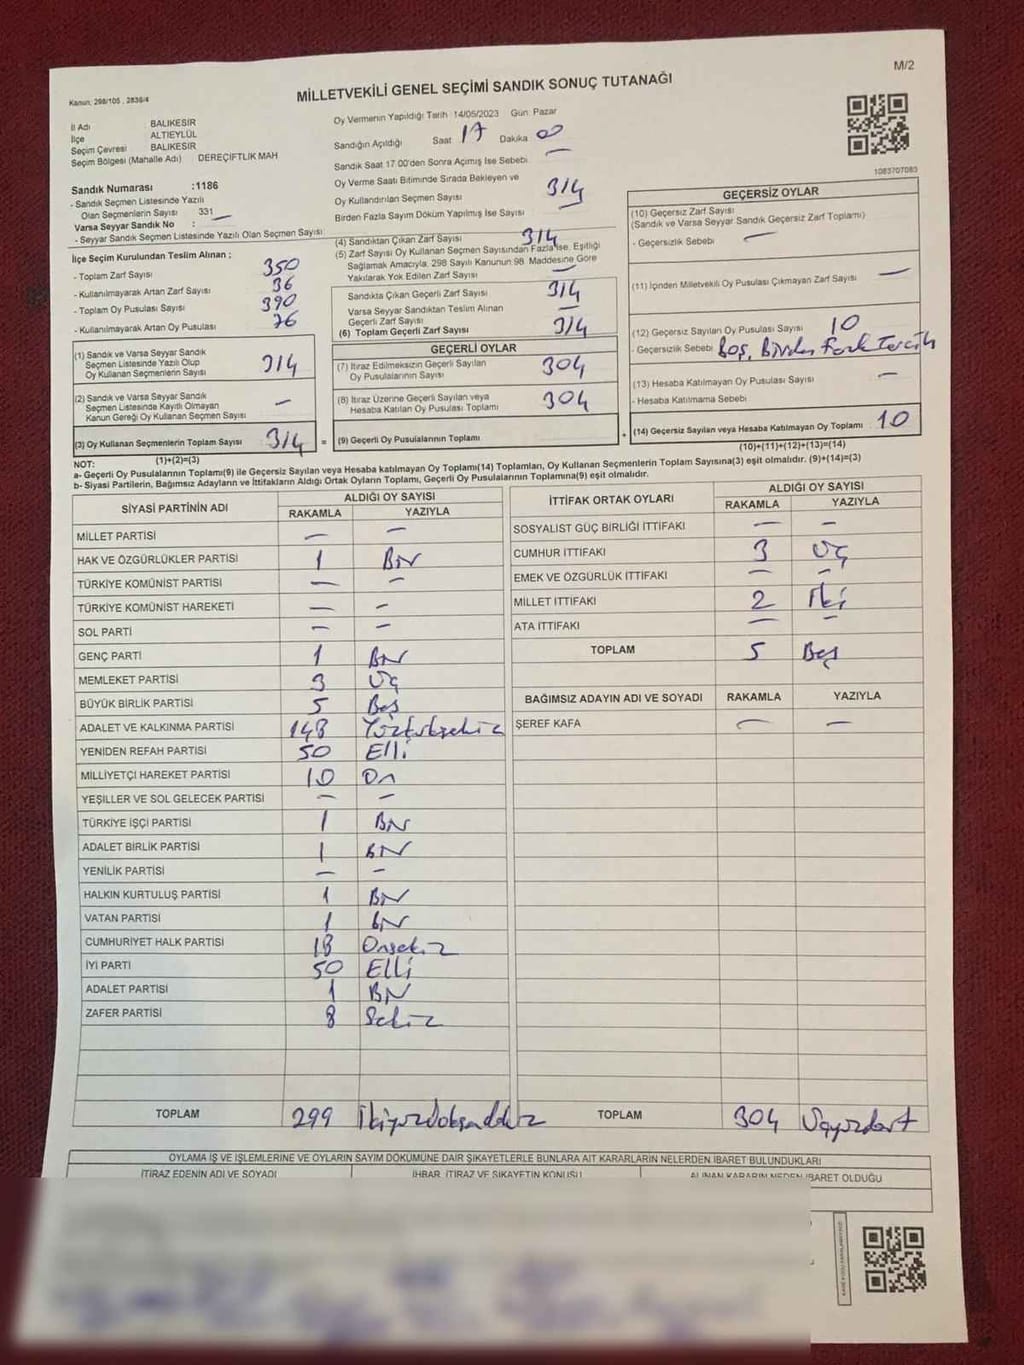 M/2
Kanun, 298/105 , 2839/4
MİLLETVEKİLİ GENEL SEÇİMİ SANDIK SONUÇ TUTANAĞI
İl Adı BALIKESİR
İlçe ALTIEYLÜL
Seçim Çevresi BALIKESİR
Seçim Bölgesi (Mahalle Adı) DEREÇİFTLİK MAH
Sandık Numarası :1186
- Sandık Seçmen Listesinde Yazılı
Olan Seçmenlerin Sayısı 331
Varsa Seyyar Sandık No : —
- Seyyar Sandık Seçmen Listesinde Yazılı Olan Seçmen Sayısı
İlçe Seçim Kurulundan Teslim Alınan ;
- Toplam Zarf Sayısı 350
- Kullanılmayarak Artan Zarf Sayısı 36
- Toplam Oy Pusulası Sayısı 390
- Kullanılmayarak Artan Oy Pusulası 76
(1) Sandık ve Varsa Seyyar Sandık
Seçmen Listesinde Yazılı Olup
Oy Kullanan Seçmenlerin Sayısı 314
(2) Sandık ve Varsa Seyyar Sandık
Seçmen Listesinde Kayıtlı Olmayan
Kanun Gereği Oy Kullanan Seçmen Sayısı —
(3) Oy Kullanan Seçmenlerin Toplam Sayısı 314 =
(1)+(2)=(3)
Oy Vermenin Yapıldığı Tarih 14/05/2023 Gün: Pazar
Sandığın Açıldığı Saat 17 Dakika 00
Sandık Saat 17.00'den Sonra Açımış İse Sebebi —
Oy Verme Saati Bitiminde Sırada Bekleyen ve
Oy Kullandırılan Seçmen Sayısı 314
Birden Fazla Sayım Döküm Yapılmış İse Sayısı —
(4) Sandıktan Çıkan Zarf Sayısı 314
(5) Zarf Sayısı Oy Kullanan Seçmen Sayısından Fazla İse, Eşitliği
Sağlamak Amacıyla, 298 Sayılı Kanunun 98. Maddesine Göre
Yakılarak Yok Edilen Zarf Sayısı —
Sandıkta Çıkan Geçerli Zarf Sayısı 314
Varsa Seyyar Sandıktan Teslim Alınan
Geçerli Zarf Sayısı —
(6) Toplam Geçerli Zarf Sayısı 314
GEÇERLİ OYLAR
(7) İtiraz Edilmeksizin Geçerli Sayılan
Oy Pusulalarının Sayısı 304
(8) İtiraz Üzerine Geçerli Sayılan veya
Hesaba Katılan Oy Pusulası Toplamı 304
(9) Geçerli Oy Pusulalarının Toplamı +
1083707083
GEÇERSİZ OYLAR
(10) Geçersiz Zarf Sayısı
(Sandık ve Varsa Seyyar Sandık Geçersiz Zarf Toplamı)
- Geçersizlik Sebebi —
(11) İçinden Milletvekili Oy Pusulası Çıkmayan Zarf Sayısı —
(12) Geçersiz Sayılan Oy Pusulası Sayısı 10
- Geçersizlik Sebebi Boş, Birden Fazla Tercih
(13) Hesaba Katılmayan Oy Pusulası Sayısı —
- Hesaba Katılmama Sebebi
(14) Geçersiz Sayılan veya Hesaba Katılmayan Oy Toplamı 10
(10)+(11)+(12)+(13)=(14)
NOT:
a- Geçerli Oy Pusulalarının Toplamı(9) ile Geçersiz Sayılan veya Hesaba katılmayan Oy Toplamı(14) Toplamları, Oy Kullanan Seçmenlerin Toplam Sayısına(3) eşit olmalıdır. (9)+(14)=(3)
b- Siyasi Partilerin, Bağımsız Adayların ve İttifakların Aldığı Ortak Oyların Toplamı, Geçerli Oy Pusulalarının Toplamına(9) eşit olmalıdır.
SİYASİ PARTİNİN ADI ALDIĞI OY SAYISI
RAKAMLA YAZIYLA
MİLLET PARTİSİ — —
HAK VE ÖZGÜRLÜKLER PARTİSİ 1 Bir
TÜRKİYE KOMÜNİST PARTİSİ — —
TÜRKİYE KOMÜNİST HAREKETİ — —
SOL PARTİ — —
GENÇ PARTİ 1 Bir
MEMLEKET PARTİSİ 3 Üç
BÜYÜK BİRLİK PARTİSİ 5 Beş
ADALET VE KALKINMA PARTİSİ 148 Yüzkırksekiz
YENİDEN REFAH PARTİSİ 50 Elli
MİLLİYETÇİ HAREKET PARTİSİ 10 On
YEŞİLLER VE SOL GELECEK PARTİSİ — —
TÜRKİYE İŞÇİ PARTİSİ 1 Bir
ADALET BİRLİK PARTİSİ 1 Bir
YENİLİK PARTİSİ — —
HALKIN KURTULUŞ PARTİSİ 1 Bir
VATAN PARTİSİ 1 Bir
CUMHURİYET HALK PARTİSİ 18 Onsekiz
İYİ PARTİ 50 Elli
ADALET PARTİSİ 1 Bir
ZAFER PARTİSİ 8 Sekiz
TOPLAM 299 İkiyüzdoksandokuz
İTTİFAK ORTAK OYLARI ALDIĞI OY SAYISI
RAKAMLA YAZIYLA
SOSYALİST GÜÇ BİRLİĞİ İTTİFAKI — —
CUMHUR İTTİFAKI 3 Üç
EMEK VE ÖZGÜRLÜK İTTİFAKI — —
MİLLET İTTİFAKI 2 İki
ATA İTTİFAKI — —
TOPLAM 5 Beş
BAĞIMSIZ ADAYIN ADI VE SOYADI RAKAMLA YAZIYLA
ŞEREF KAFA — —
TOPLAM 304 Üçyüzdört
OYLAMA İŞ VE İŞLEMLERİNE VE OYLARIN SAYIM DÖKÜMÜNE DAİR ŞİKAYETLERLE BUNLARA AİT KARARLARIN NELERDEN İBARET BULUNDUKLARI
İTİRAZ EDENİN ADI VE SOYADI İHBAR, İTİRAZ VE ŞİKAYETİN KONUSU ALINAN KARARIN NEDEN İBARET OLDUĞU